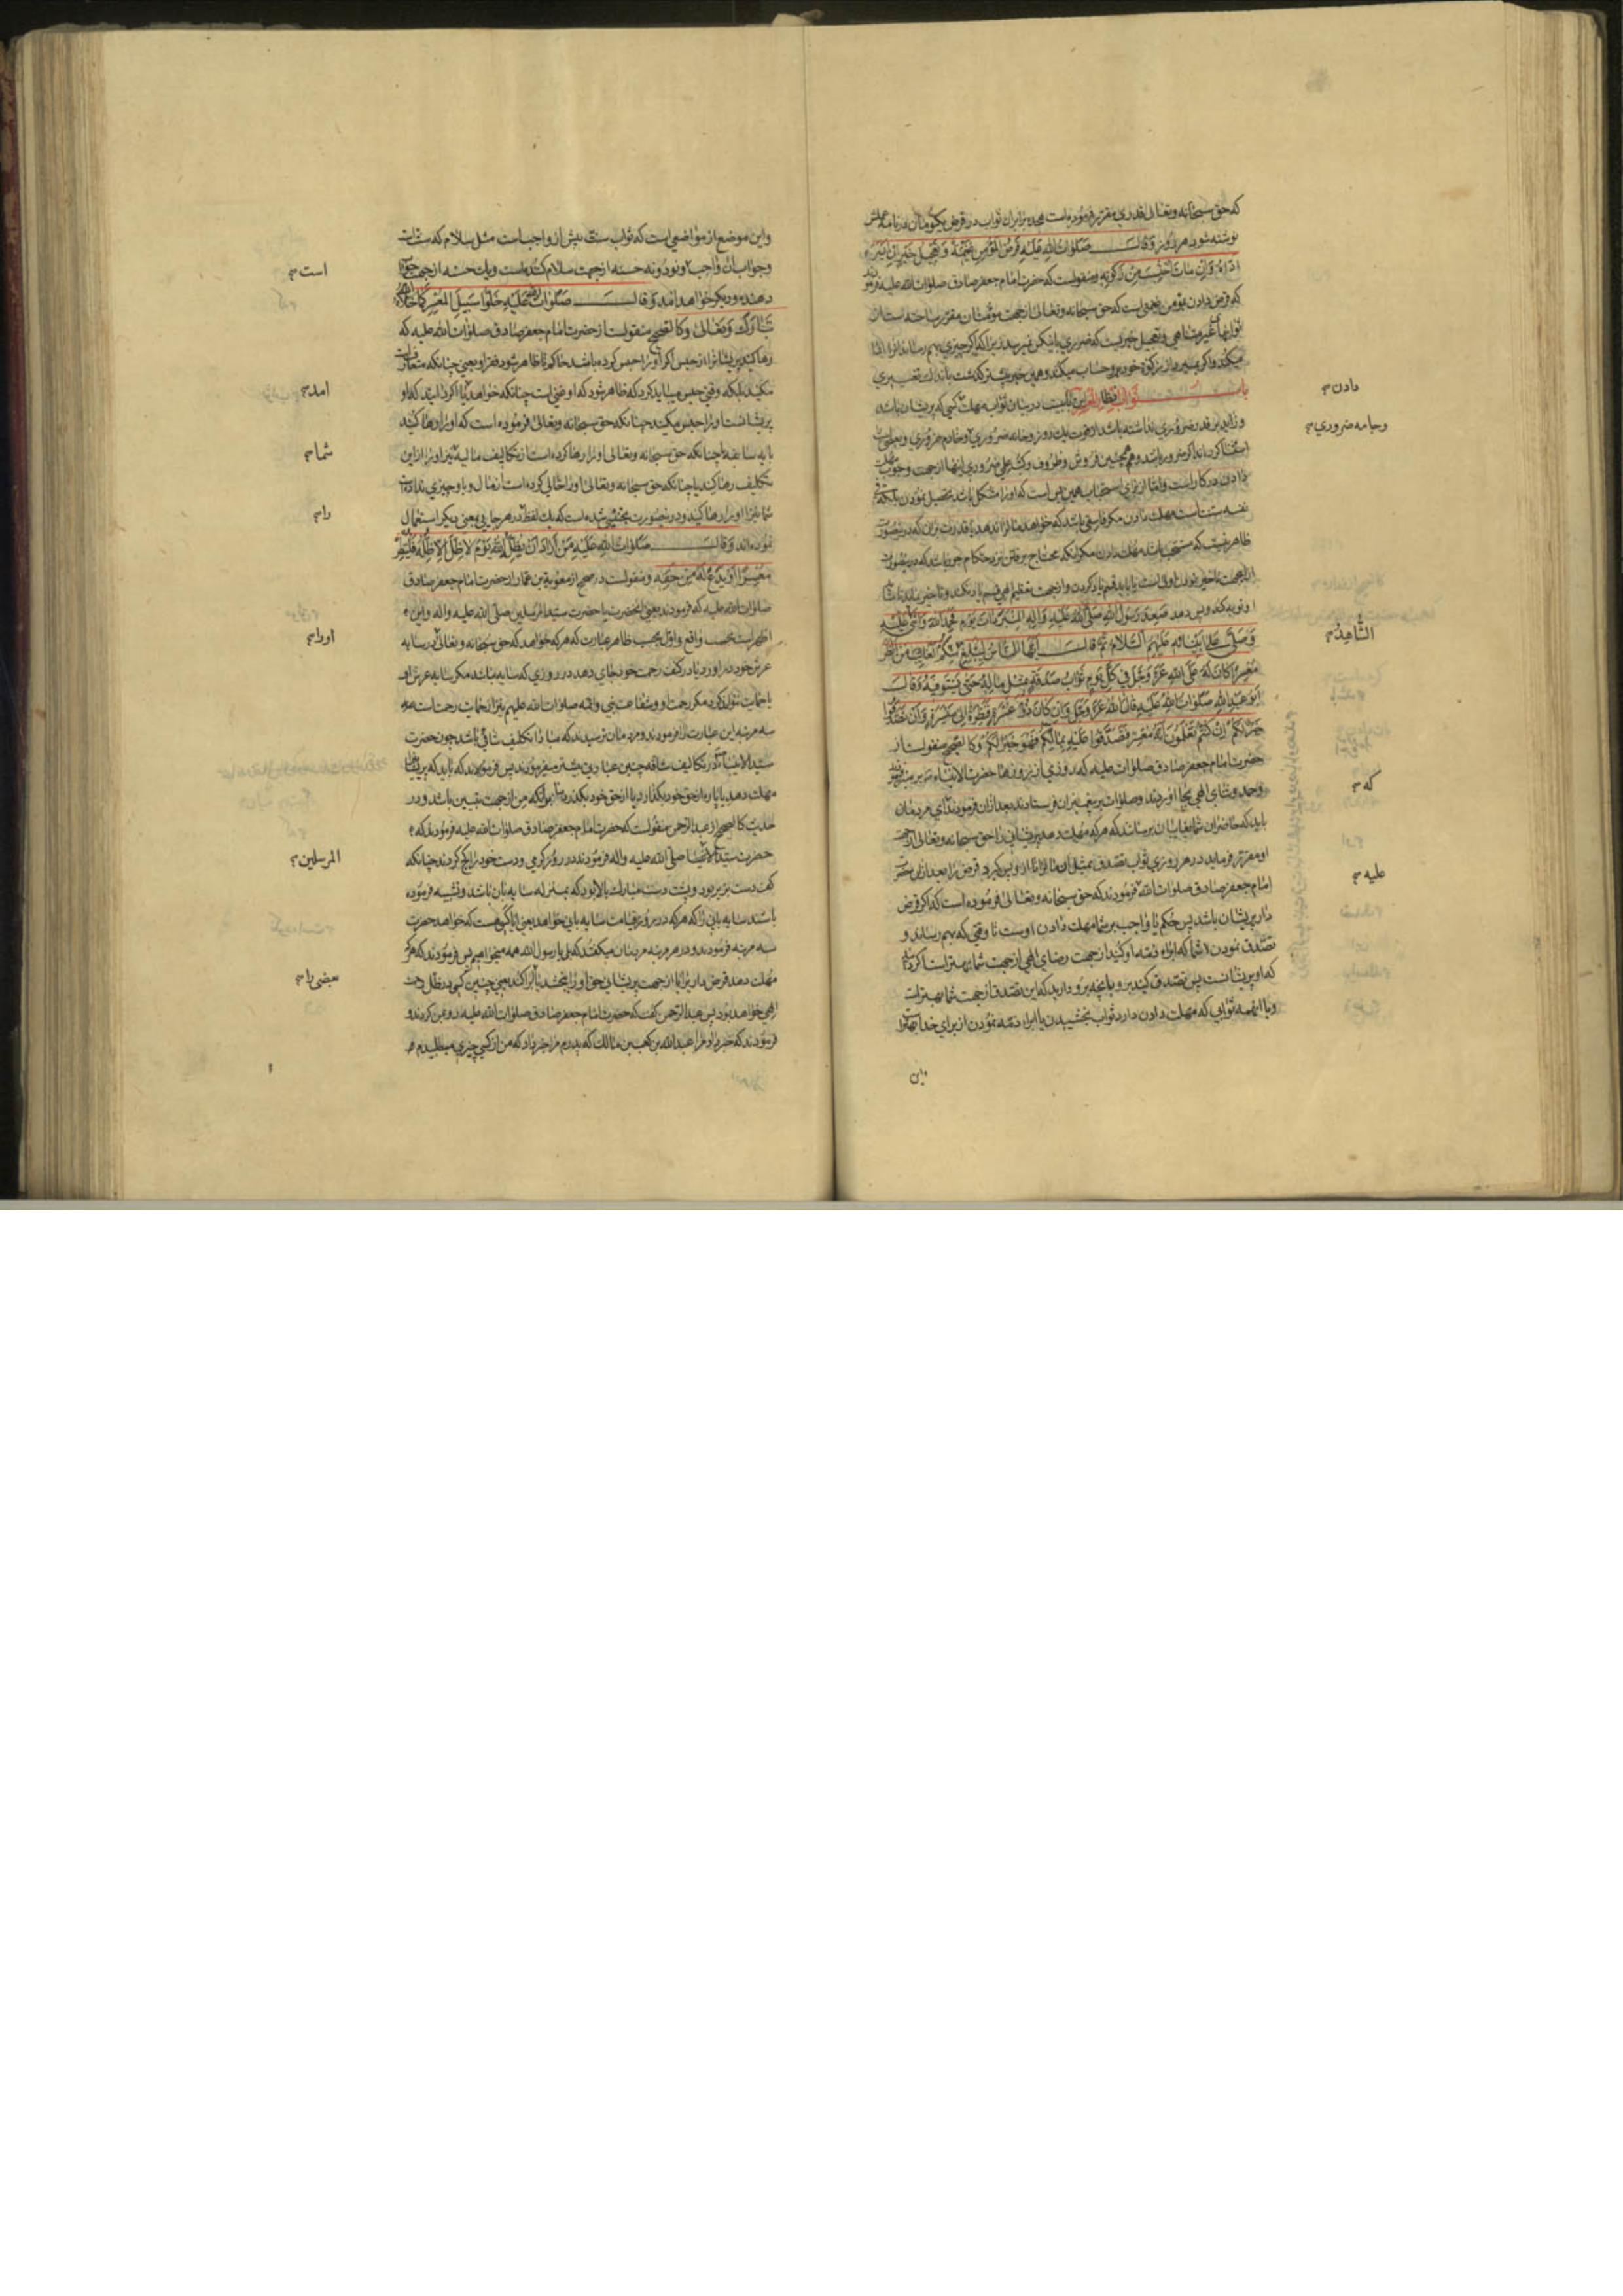 که حق سبحانه وتعالی قدری مقرر فرموده است مجده برابران ثواب در قرض یکتومان در نامه عملش
نوشته شود هر روز وَقالَ صَلَواتُ اللهِ عَلَیْهِ قَرْضُ الْمُؤْمِنِ غَنیمَةٌ وَتَعْجیلُ خَیْرٍ اِنْ اَیْسَرَ
اَدّاهُ وَاِنْ ماتَ اُحْتُسِبَ مِنْ زَکوتِهِ ومنقولست که حضرت امام جعفر صادق صلوات الله علیه فرمودند
که قرض دادن بمؤمن غنیمتی است که حق سبحانه وتعالی از جهت مؤمنان مقرر ساخته است از
ثوابهای غیر متناهی وتعجیل خیریست که ضرری بایشان نمیرسد زیرا که اگر چیزی بهم رساند ادا
میکند واگر بمیرد از زکوة خود بر او حساب میکند وهمین خبر پیشتر گذشت باندک تغییری
باب ثواب اِنظار المعسر این بابیست در بیان ثواب مهلت کسی که پریشان باشد
وزاید بر قدر ضروری نداشته باشد از قوت یک روز وخانه ضروری وخادم ضروری وبعضی
استثنا کرده‌اند اگر ضرور باشد وهمچنین فروش وظروف وکتب علمی ضروری اینها از جهت وجوب مهلت
دادن در کار است واما از برای استحباب همین بس است که او را مشکل باشد تحصیل نمودن بلکه
سنت است مهلت دادن مگر فاسقی باشد که خواهد مال را ندهد با قدرت بر آن که در این صورت
ظاهر نیست که مستحب باشد مهلت دادن مگر آنکه محتاج برفتن نزد حکام جور باشد که در این صورت
او توبه کند وپس دهد صَعِدَ رَسُولُ اللهِ صَلَّی اللهُ عَلَیْهِ وَآلِهِ الْمِنْبَرَ ذاتَ یَوْمٍ فَحَمِدَ اللهَ وَاَثْنی عَلَیْهِ
وَصَلّی عَلی اَنْبِیائِهِ عَلَیْهِمُ السَّلامُ ثُمَّ قالَ اَیُّهَا النّاسُ لِیُبَلِّغْ مِنْکُمُ الْغایِبَ مَنْ اَنْظَرَ
مُعْسِرًا کانَ لَهُ عَلَی اللهِ عَزَّ وَجَلَّ فی کُلِّ یَوْمٍ ثَوابُ صَدَقَةٍ بِمِثْلِ مالِهِ حَتّی یَسْتَوْفِیَهُ وَقالَ
اَبُو عَبْدِ اللهِ صَلَواتُ اللهِ عَلَیْهِ قالَ اللهُ عَزَّ وَجَلَّ وَاِنْ کانَ ذُو عُسْرَةٍ فَنَظِرَةٌ اِلی مَیْسَرَةٍ وَاَنْ تَصَدَّقُوا
خَیْرٌ لَکُمْ اِنْ کُنْتُمْ تَعْلَمُونَ اَنَّهُ مُعْسِرٌ فَتَصَدَّقُوا عَلَیْهِ بِمالِکُمْ فَهُوَ خَیْرٌ لَکُمْ وکالصحیح منقولست از
حضرت امام جعفر صادق صلوات علیه که روزی از روزها حضرت سید الانبیاء بر منبر رفتند
وحمد وثنای الهی بجا آوردند وصلوات بر پیغمبران فرستادند بعد از آن فرمودند ای مردمان
باید که حاضران شما بغایبان برسانند که هر که مهلت دهد پریشانی را حق سبحانه وتعالی از جهت
او مقرر فرماید در هر روزی ثواب تصدق بمثل آن مال را تا از او پس گیرد قرض را بعد از آن حضرت
امام جعفر صادق صلوات الله فرمودند که حق سبحانه وتعالی فرموده است که اگر قرض
دار پریشان باشد پس حکم یا واجب بر شما مهلت دادن اوست تا وقتی که بهم رساند و
تصدق نمودن شما که ابراء ذمه او کنید از جهت رضای الهی از جهت شما بهتر است اگر دانید
که او پریشانست پس تصدق کنید برو بآنچه برو دارید که این تصدق از جهت شما بهتر است
وبا اینهمه ثوابی که مهلت دادن دارد ثواب بخشیدن یا ابراء ذمه نمودن از برای خدا بهتر است
واین
دادن
وجامه ضروری
الشّاهِدُ
که
علیه
واین موضع از مواضعی است که ثواب سنت بیش از واجب است مثل سلام که سنت است
وجواب آن واجب ونود ونه حسنه از جهت سلام کننده است ویک حسنه از جهت جواب
دهنده ودیگر خواهد آمد وَقالَ صَلَواتُ اللهِ عَلَیْهِ خَلُّوا سَبیلَ الْمُعْسِرِ کَما خَلاّهُ اللهُ
تَبارَکَ وَتَعالی وکالصحیح منقولست از حضرت امام جعفر صادق صلوات الله علیه که
رها کنید پریشان را از حبس اگر او را حبس کرده باشد حاکم تا ظاهر شود فقر او یعنی چنانکه متعارفست
مکنید بلکه وقتی حبس میباید کرد که ظاهر شود که او غنی است چنانکه خواهد یا اگر دانید که او
پریشانست او را حبس مکنید چنانکه حق سبحانه وتعالی فرموده است که او را رها کنید
بآیه سابقه یا چنانکه حق سبحانه وتعالی او را رها کرده است از تکالیف مالیه نیز او را از این
تکلیف رها کنید یا چنانکه حق سبحانه وتعالی او را خالی کرده است از مال وباو چیزی نداده است
شما نیز او را رها کنید ودر این صورت تجنیس شده است که یک لفظ در هر جایی بمعنی دیگر استعمال
نموده‌اند وَقالَ صَلَواتُ اللهِ عَلَیْهِ مَنْ اَرادَ اَنْ یُظِلَّهُ اللهُ یَوْمَ لا ظِلَّ اِلّا ظِلُّهُ فَلْیُنْظِرْ
مُعْسِرًا اَوْ لِیَدَعْ لَهُ مِنْ حَقِّهِ ومنقولست در صحیح از معویة بن عمار از حضرت امام جعفر صادق
صلوات الله علیه که فرمودند یعنی آنحضرت یا حضرت سید المرسلین صلی الله علیه وآله واین
اظهر است بحسب واقع واول بحسب ظاهر عبارت که هر که خواهد که حق سبحانه وتعالی در سایه
عرش خود در آورد یا در کنف رحمت خود جای دهد در روزی که سایه نباشد مگر سایه عرش او
سه مرتبه این عبارت را فرمودند ومردمان ترسیدند که مبادا تکلیف شاقی باشد چون حضرت
سید الانبیا در تکالیف شاقه چنین عبارتی بیشتر میفرمودند پس فرمودند که باید که پریشان را
مهلت دهد یا پاره از حق خود بگذارد یا از حق خود بگذرد
حدیث کالصحیح از عبد الرحمن منقولست که حضرت امام جعفر صادق صلوات الله علیه فرمودند که
حضرت سید الانبیا صلی الله علیه وآله فرمودند در روز گرمی ودست خود را کج کردند چنانکه
کف دست بزیر بود وپشت دست مبارک بالا بود که بمنزله سایه بان باشد وتشبیه فرموده
باشند سایه بانی را که هر که در روز قیامت سایه بانی خواهد یعنی آیا کسی هست که خواهد حضرت
سه مرتبه فرمودند ودر هر مرتبه مردمان میگفتند که بلی یا رسول الله همه میخواهیم پس فرمودند که هر که
مهلت دهد قرض دار یرا یا از جهت پریشانی حق او را ببخشد یا ابرا کند یعنی چنین کسی در ظل رحمت
الهی خواهد بود پس عبد الرحمن گفت که حضرت امام جعفر صادق صلوات الله علیه رو بمن کردند و
فرمودند که خبر داد مرا عبد الله بن کعب بن مالک که پدرم مرا خبر داد که من از کسی چیزی میطلبیدم
است
امد
شما
را
اورا
المرسلین
بعضی را